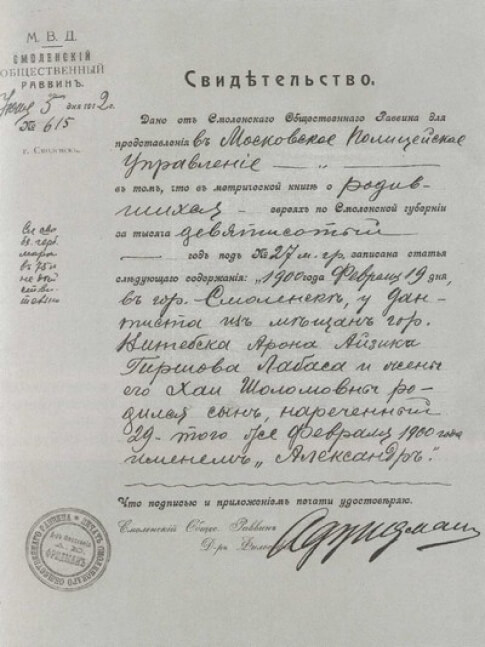 М. В. Д.
СМОЛЕНСКІЙ
ОБЩЕСТВЕННЫЙ
РАВВИНЪ.
5 дня 1912 г.
№ 615
г. Смоленскъ.
Свидѣтельство.
Дано отъ Смоленскаго Общественнаго Раввина для
представленія въ Московское Полицейское
Управленіе
въ томъ, что въ метрической книгѣ о родив-
шихся евреяхъ по Смоленской губерніи
за тысяча девятисотый
годъ подъ № 27 м. гр. записана статья
слѣдующаго содержанія: „1900 года Февраля 19 дня,
въ гор. Смоленскѣ, у дан-
тиста изъ мѣщанъ гор.
Витебска Арона Айзика
Гиршова Лабаса и жены
его Хаи Шоломовны ро-
дился сынъ, нареченный
29 того же Февраля 1900 года
именемъ „Александръ".
Что подписью и приложеніемъ печати удостовѣряю.
Смоленскій Общес. Раввинъ
Д-ръ Филос.
ПЕЧАТЬ СМОЛЕНСКАГО ОБЩЕСТВЕННАГО РАВВИНА